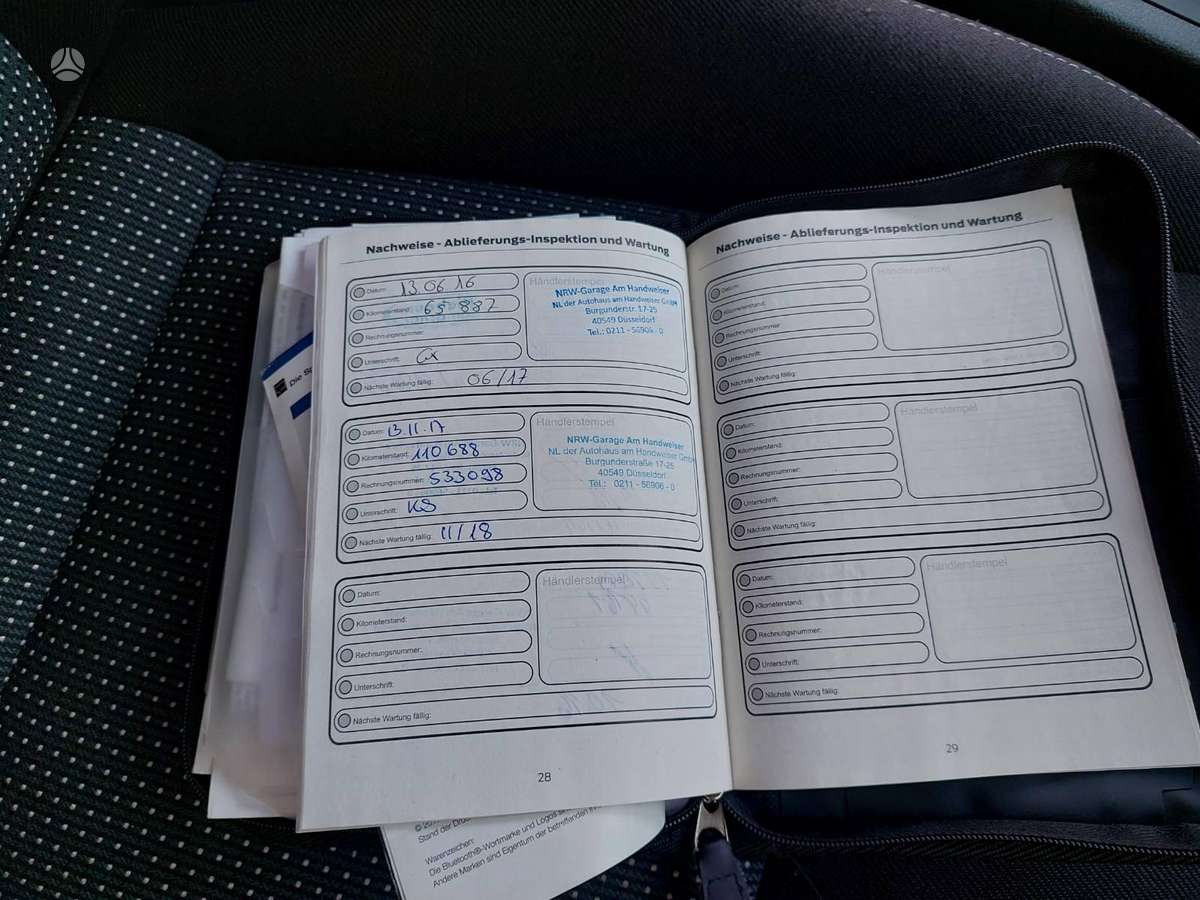 Nachweise - Ablieferungs-Inspektion und Wartung
Datum: 13.06 16
Kilometerstand: 65 887
Rechnungsnummer:
Unterschrift:
Nächste Wartung fällig: 06/17
Händlerstempel
NRW-Garage Am Handweiser
NL der Autohaus am Handweiser GmbH
Burgunderstr. 17-25
40549 Düsseldorf
Tel.: 0211 - 56906 - 0
Datum: 13.11.17
Kilometerstand: 110 688
Rechnungsnummer: 533098
Unterschrift: KS
Nächste Wartung fällig: 11/18
Händlerstempel
NRW-Garage Am Handweiser
NL der Autohaus am Handweiser GmbH
Burgunderstraße 17-25
40549 Düsseldorf
Tel.: 0211 - 56906 - 0
Datum:
Kilometerstand:
Rechnungsnummer:
Unterschrift:
Nächste Wartung fällig:
Händlerstempel
28
Nachweise - Ablieferungs-Inspektion und Wartung
Datum:
Kilometerstand:
Rechnungsnummer:
Unterschrift:
Nächste Wartung fällig:
Händlerstempel
Datum:
Kilometerstand:
Rechnungsnummer:
Unterschrift:
Nächste Wartung fällig:
Händlerstempel
Datum:
Kilometerstand:
Rechnungsnummer:
Unterschrift:
Nächste Wartung fällig:
Händlerstempel
29
Die
Stand der
Warenzeichen:
Die Bluetooth®-Wortmarke und Logos
Andere Marken sind Eigentum der betreffenden